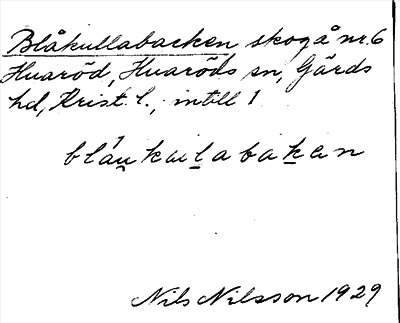 Blåkullabacken, skogå nr. 6
Huaröd, Huaröds sn, Gärds
hd, Krist. l., intill 1
blåu̯kulabakan
Nils Nilsson 1929